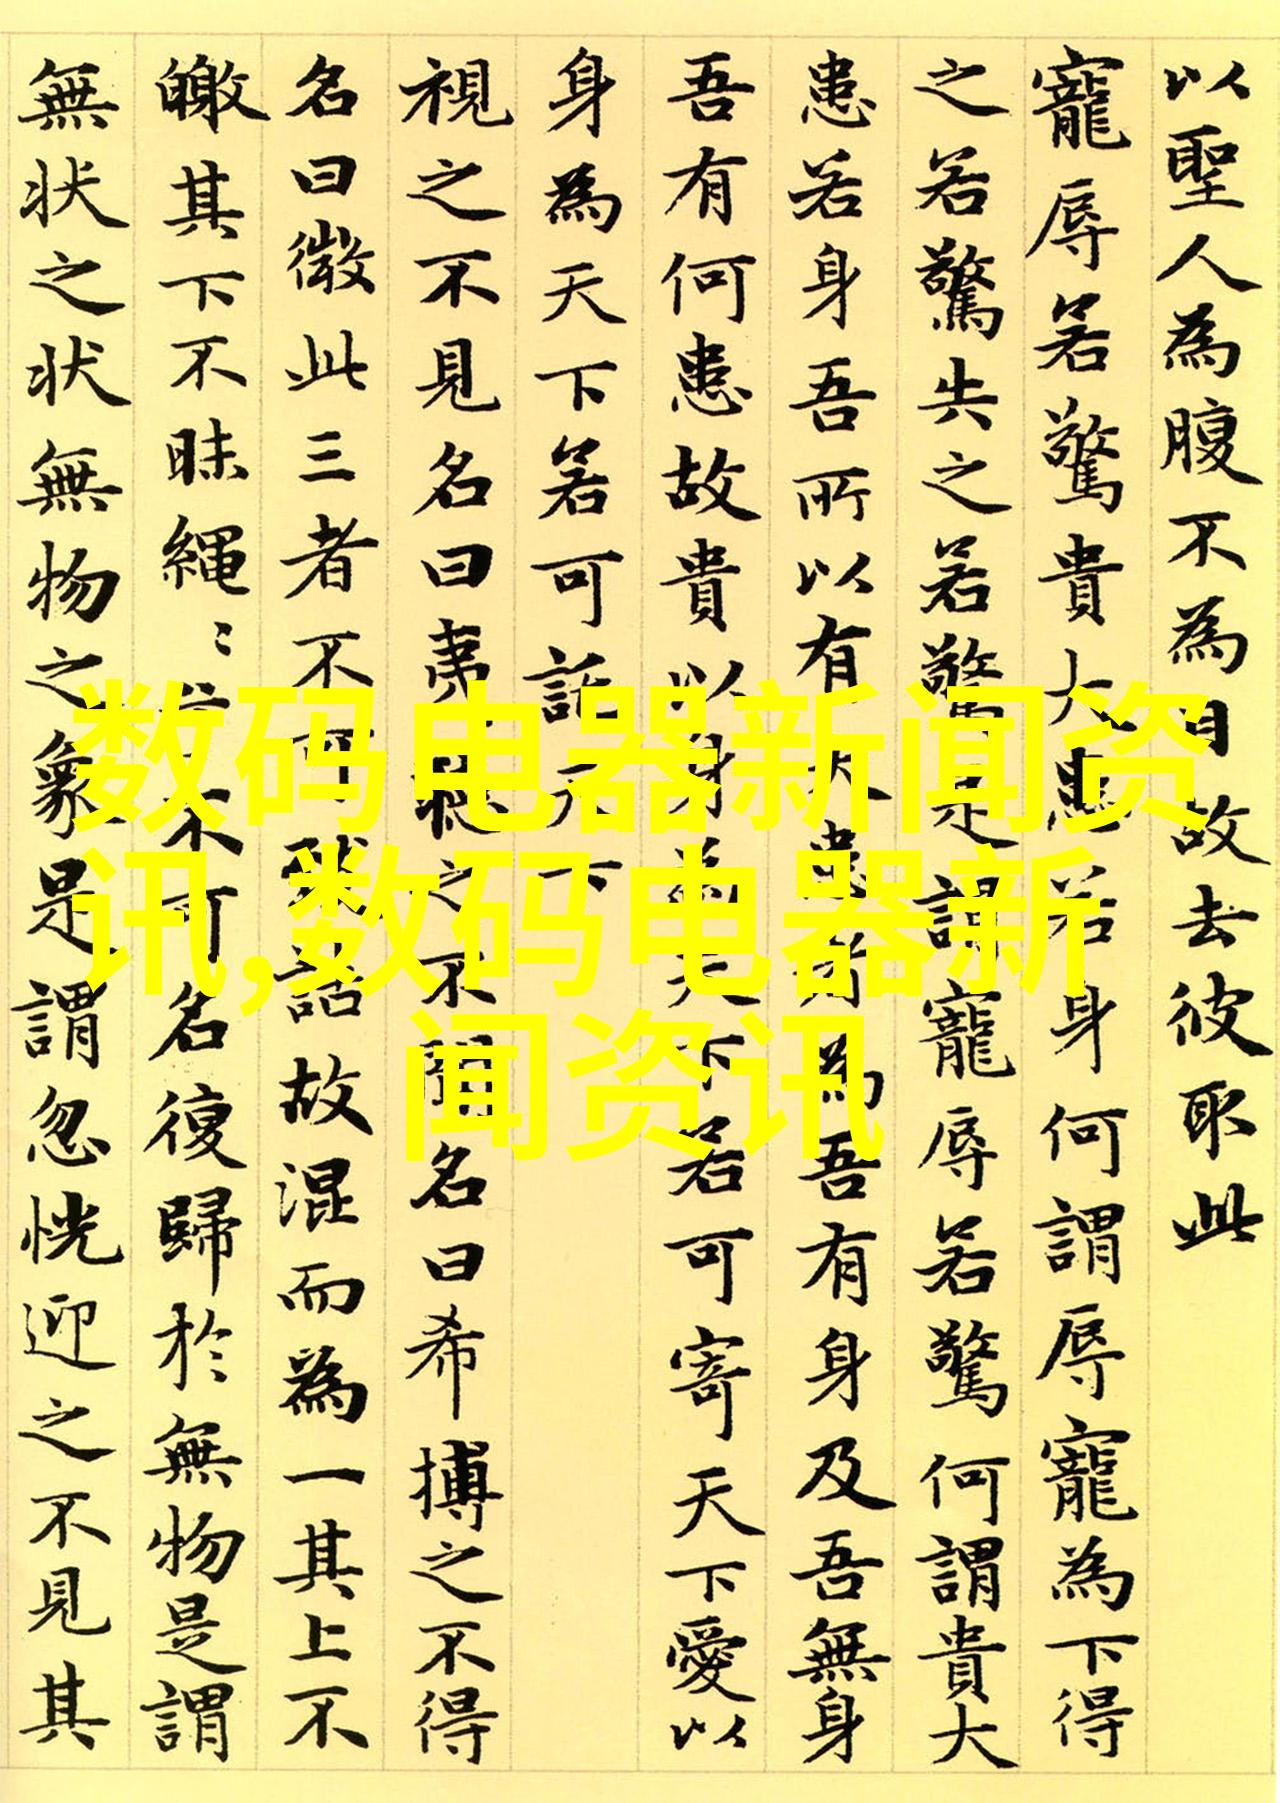 以聖人為腹不為目故去彼取此
寵辱若驚貴大患若身何謂辱寵為下得
之若驚失之若驚是謂寵辱若驚何謂貴大
患若身吾所以有大患者為吾有身及吾無身
吾有何患故貴以身為天下若可寄天下愛以
身為天下若可託天下
視之不見名曰夷聽之不聞名曰希搏之不得
名曰微此三者不可致詰故混而為一其上不
皦其下不昧繩〻不可名復歸於無物是謂
無状之状無物之象是謂忽恍迎之不見其
数码电器新闻资
讯,数码电器新
闻资讯